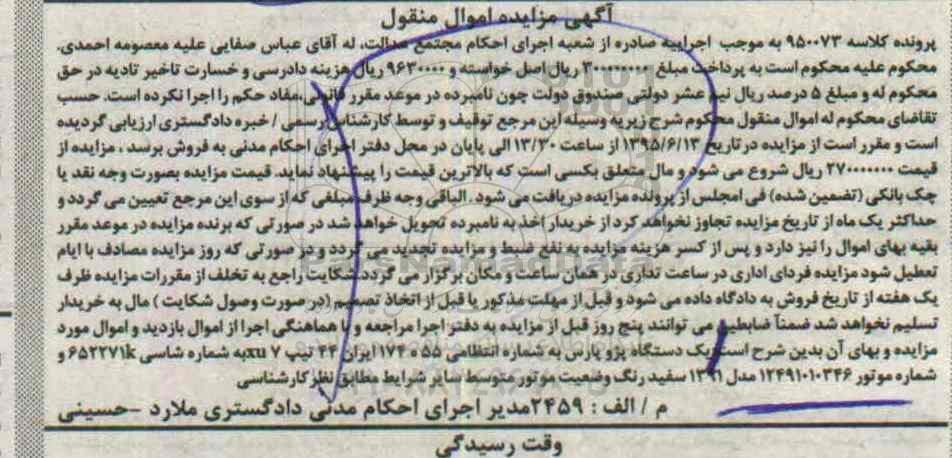 آگهی مزایده اموال منقول
پرونده کلاسه ۹۵۰۰۷۳ به موجب اجراییه صادره از شعبه اجرای احکام مجتمع عدالت، له آقای عباس صفایی علیه معصومه احمدی.
محکوم علیه محکوم است به پرداخت مبلغ ۳۰۰۰۰۰۰۰۰ ریال اصل خواسته و ۹۶۳۰۰۰۰ ریال هزینه دادرسی و خسارت تاخیر تادیه در حق
محکوم له و مبلغ ۵ درصد ریال نیم عشر دولتی صندوق دولت چون نامبرده در موعد مقرر قانونی،مفاد حکم را اجرا نکرده است. حسب
تقاضای محکوم له اموال منقول محکوم شرح زیر به وسیله این مرجع توقیف و توسط کارشناس رسمی / خبره دادگستری ارزیابی گردیده
است و مقرر است از مزایده در تاریخ ۱۳۹۵/۶/۱۳ از ساعت ۱۳/۳۰ الی پایان در محل دفتر اجرای احکام مدنی به فروش برسد ، مزایده از
قیمت ۲۷۰۰۰۰۰۰۰ ریال شروع می شود و مال متعلق بکسی است که بالاترین قیمت را پیشنهاد نماید. قیمت مزایده بصورت وجه نقد یا
چک بانکی (تضمین شده) فی امجلس از برنده مزایده دریافت می شود . الباقی وجه ظرف مبلغی که از سوی این مرجع تعیین می گردد و
حداکثر یک ماه از تاریخ مزایده تجاوز نخواهد کرد از خریدار اخذ به نامبرده تحویل خواهد شد در صورتی که برنده مزایده در موعد مقرر
بقیه بهای اموال را نیز دارد و پس از کسر هزینه مزایده به نفع ضبط و مزایده تجدید می گردد و در صورتی که روز مزایده مصادف با ایام
تعطیل شود مزایده فردای اداری در ساعت تداری در همان ساعت و مکان برگزار می گردد.شکایت راجع به تخلف از مقررات مزایده ظرف
یک هفته از تاریخ فروش به دادگاه داده می شود و قبل از مهلت مذکور یا قبل از اتخاذ تصمیم (در صورت وصول شکایت ) مال به خریدار
تسلیم نخواهد شد ضمناً ضابطین می توانند پنج روز قبل از مزایده به دفتر اجرا مراجعه و با هماهنگی اجرا از اموال بازدید و اموال مورد
مزایده و بهای آن بدین شرح است:یک دستگاه پژو پارس به شماره انتظامی ۵۵ ه ۱۷۴ ایران ۴۴ تیپ xu ۷ به شماره شاسی ۶۵۲۲۷۱k و
شماره موتور ۱۲۴۹۱۰۱۰۳۴۶ مدل ۱۳۹۱ سفید رنگ وضعیت موتور متوسط سایر شرایط مطابق نظر کارشناسی
م / الف : ۲۴۵۹ مدیر اجرای احکام مدنی دادگستری ملارد -حسینی
وقت رسیدگی